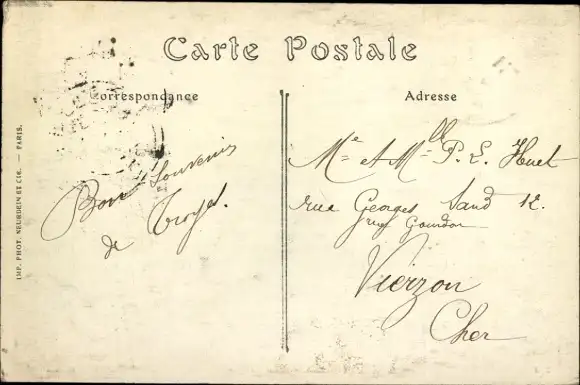 Carte Postale
Correspondance
Adresse
Bon Souvenir
de Troyes.
Me et Mlle P. L. Huet
rue Georges Sand 12.
Vierzon
Cher
IMP. PHOT. NEURDEIN ET CIE. — PARIS.